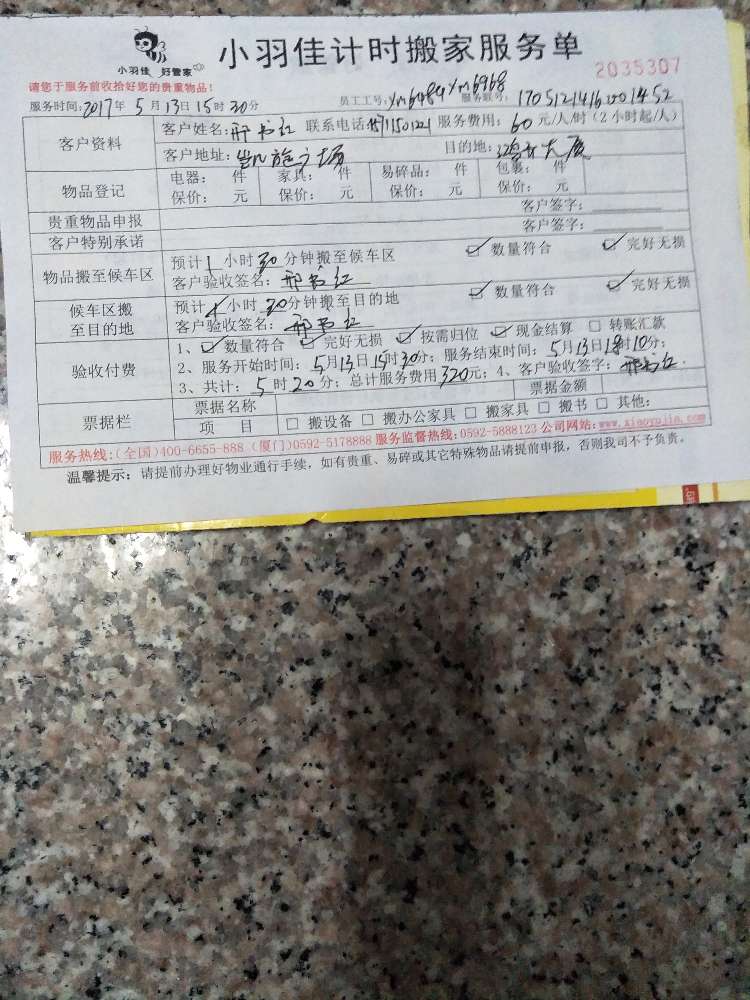 小羽佳 好管家
小羽佳计时搬家服务单
2035307
请您于服务前收拾好您的贵重物品!
服务时间:2017年5月13日15时30分 员工工号:Xm6484 Xm6968 服务账号:
客户资料 客户姓名:邢书红 联系电话: 服务费用:60元/人/时(2小时起/人)
客户地址:凯旋广场 目的地:大厦
物品登记 电器: 件 家具: 件 易碎品: 件 包裹: 件
保价: 元 保价: 元 保价: 元 保价: 元
贵重物品申报 客户签字:
客户特别承诺 客户签字:
物品搬至候车区 预计1小时30分钟搬至候车区 ✓数量符合 ✓完好无损
客户验收签名:邢书红
候车区搬至目的地 预计1小时20分钟搬至目的地 ✓数量符合 ✓完好无损
客户验收签名:邢书红
验收付费 1、✓数量符合 ✓完好无损 ✓按需归位 ✓现金结算 □转账汇款
2、服务开始时间:5月13日15时30分;服务结束时间:5月13日18时10分;
3、共计:5时20分;总计服务费用320元;4、客户验收签字:邢书红
票据栏 票据名称 票据金额
项 目 □搬设备 □搬办公家具 □搬家具 □搬书 □其他:
服务热线:(全国)400-6655-888 (厦门)0592-5178888 服务监督热线:0592-5888123 公司网站:www.xiaoyujia.com
温馨提示:请提前办理好物业通行手续,如有贵重、易碎或其它特殊物品请提前申报,否则我司不予负责。